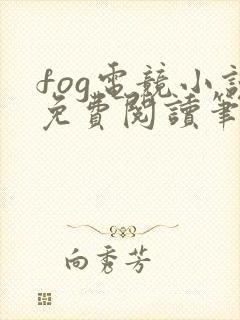 fog電競小説
免費閱讀筆
向秀芳